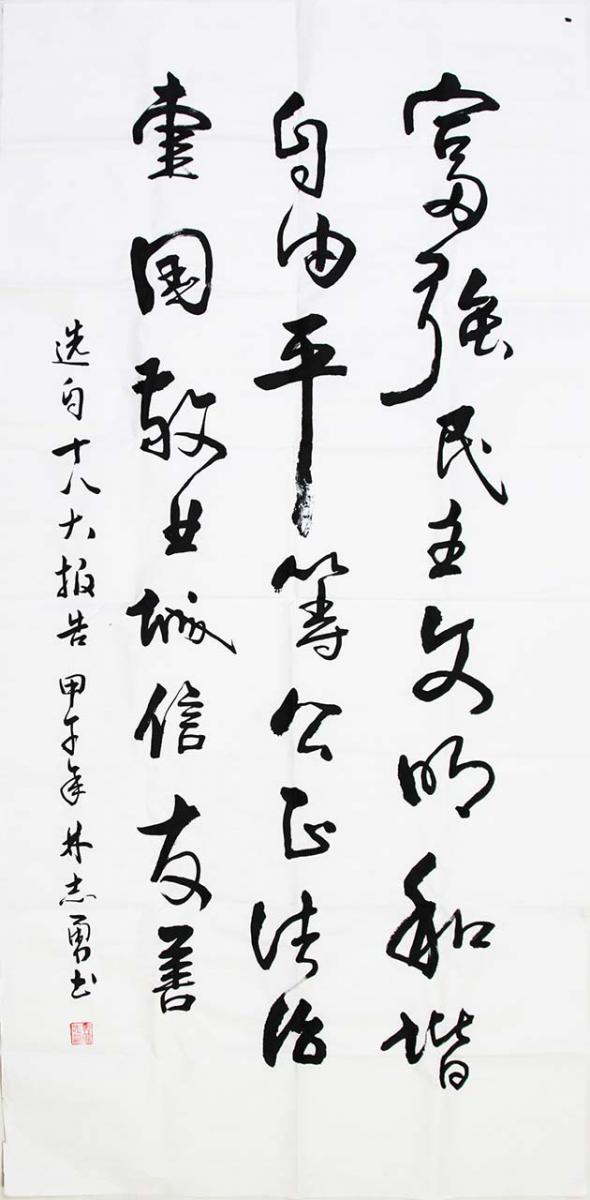 富强民主文明和谐
自由平等公正法治
爱国敬业诚信友善
选自十八大报告 甲午年 林志勇书